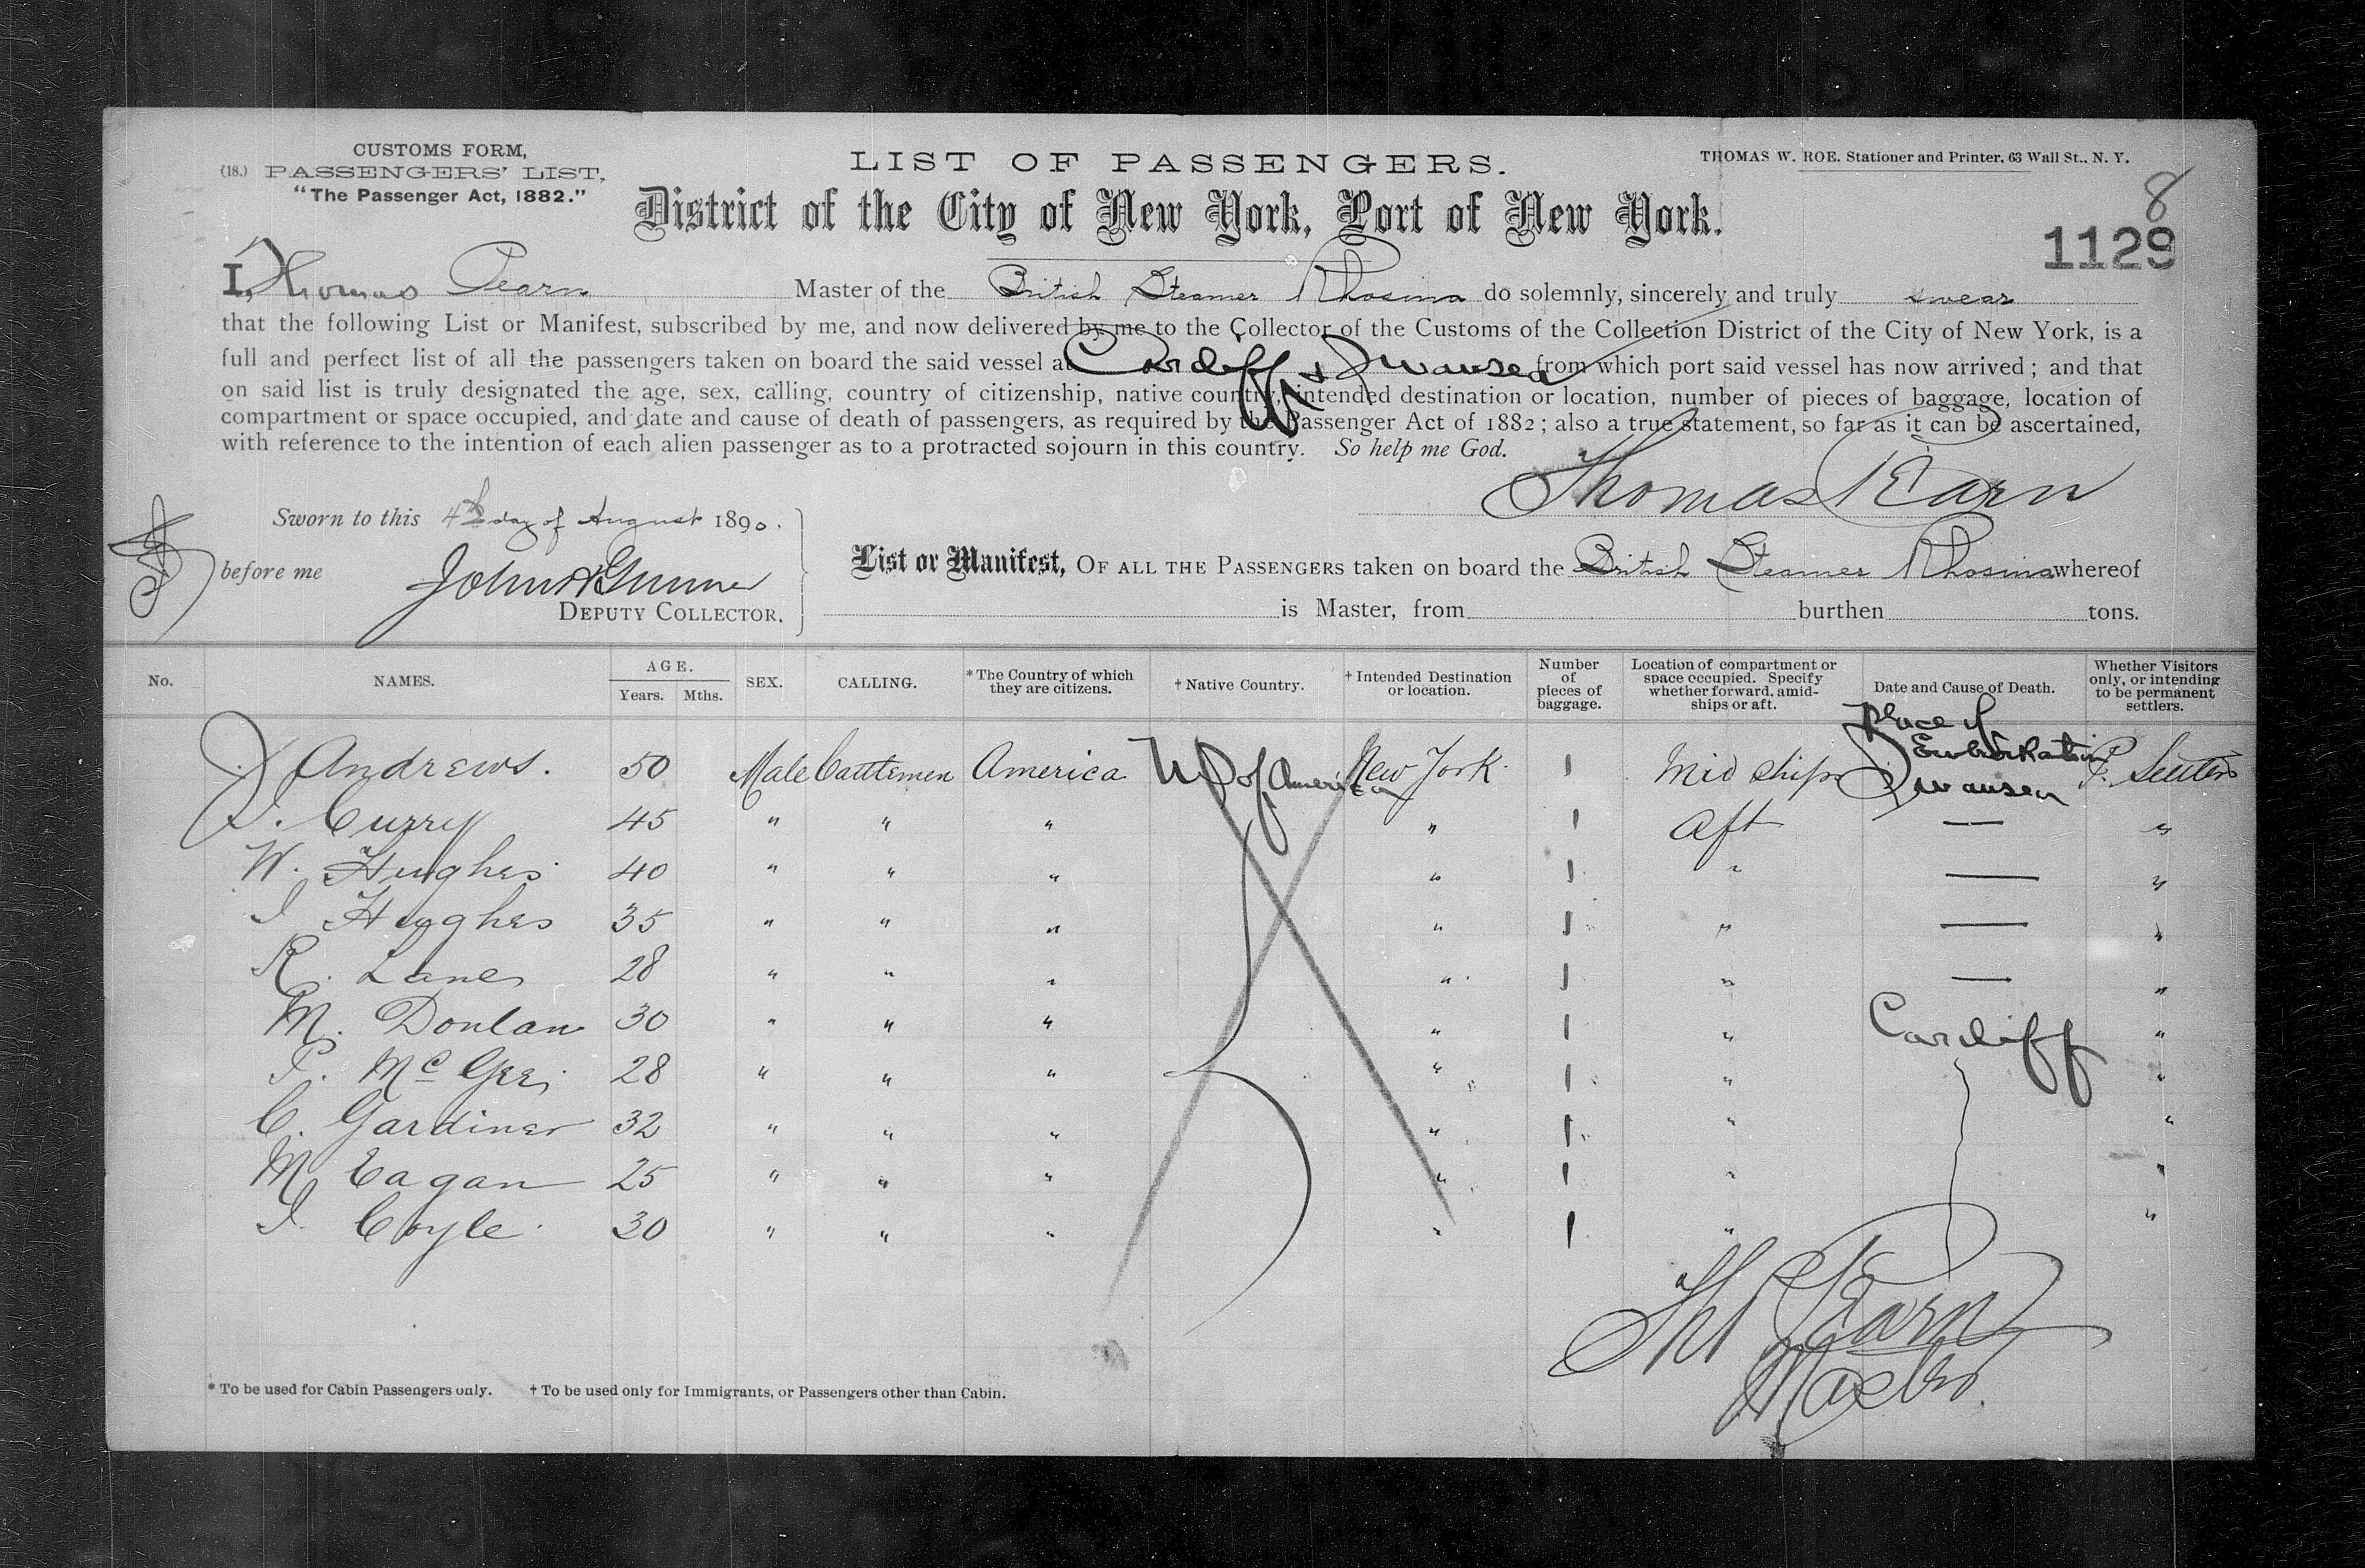 CUSTOMS FORM,
(18.) PASSENGERS' LIST,
"The Passenger Act, 1882."
LIST OF PASSENGERS.
THOMAS W. ROE. Stationer and Printer, 63 Wall St., N. Y.
District of the City of New York, Port of New York.
8
1129
I, Thomas Pearn Master of the British Steamer Rhosina do solemnly, sincerely and truly swear
that the following List or Manifest, subscribed by me, and now delivered by me to the Collector of the Customs of the Collection District of the City of New York, is a
full and perfect list of all the passengers taken on board the said vessel at Cardiff & Swansea from which port said vessel has now arrived; and that
on said list is truly designated the age, sex, calling, country of citizenship, native country, intended destination or location, number of pieces of baggage, location of
compartment or space occupied, and date and cause of death of passengers, as required by the Passenger Act of 1882; also a true statement, so far as it can be ascertained,
with reference to the intention of each alien passenger as to a protracted sojourn in this country. So help me God.
Thomas PEarn
Sworn to this 4th day of August 1890.
before me John Gunner
DEPUTY COLLECTOR.
List or Manifest, OF ALL THE PASSENGERS taken on board the British Steamer Rhosina whereof
is Master, from burthen tons.
No. NAMES. AGE. Years. Mths. SEX. CALLING. * The Country of which they are citizens. † Native Country. † Intended Destination or location. Number of pieces of baggage. Location of compartment or space occupied. Specify whether forward, amidships or aft. Date and Cause of Death. Whether Visitors only, or intending to be permanent settlers.
Place of Embarkation
J. Andrews. 50 Male Cattlemen America US of America New York 1 Mid ships Swansea P. Settlers
J. Curry 45 " " " " 1 Aft — "
W. Hughes 40 " " " " 1 " — "
J Hughes 35 " " " " 1 " — "
R. Lanes 28 " " " " 1 " — "
M. Donlan 30 " " " " 1 " Cardiff "
P. McGee 28 " " " " 1 " "
C. Gardiner 32 " " " " 1 " "
M Eagan 25 " " " " 1 " "
J. Coyle 30 " " " " 1 " "
Tho PEarn
Master
* To be used for Cabin Passengers only. † To be used only for Immigrants, or Passengers other than Cabin.